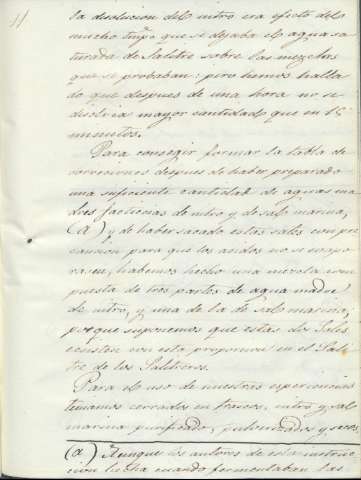 11
la disolucion del nitro era efecto del
mucho tmpo que se dejaba el agua sa
turada de Salitre sobre las mezclas
que se probaban: pero hemos halla
do que despues de una hora no se
disolvia mayor cantidad que en 15
minutos.
Para conseguir formar la tabla de
correcciones despues de haber preparado
una suficiente cantidad de aguas ma
dres facticias de nitro y de sal marina,
(a) y de haber sacado estas sales con pre
caucion para que los acidos no se evapo
raren, habemos hecho una mezcla com
puesta de tres partes de agua madre
de nitro, y una de la de sal marina,
porque suponemos que estas dos Sales
ecsisten con esta proporcion en el Sali
tre de los Salitreros.
Para el uso de nuestras esperiencias
teniamos cerrados en frascos, nitro y sal
marina purificados, pulverizados y secos.
(a) Aunque los autores de esta instruc
cion hecha cuando fermentaban las